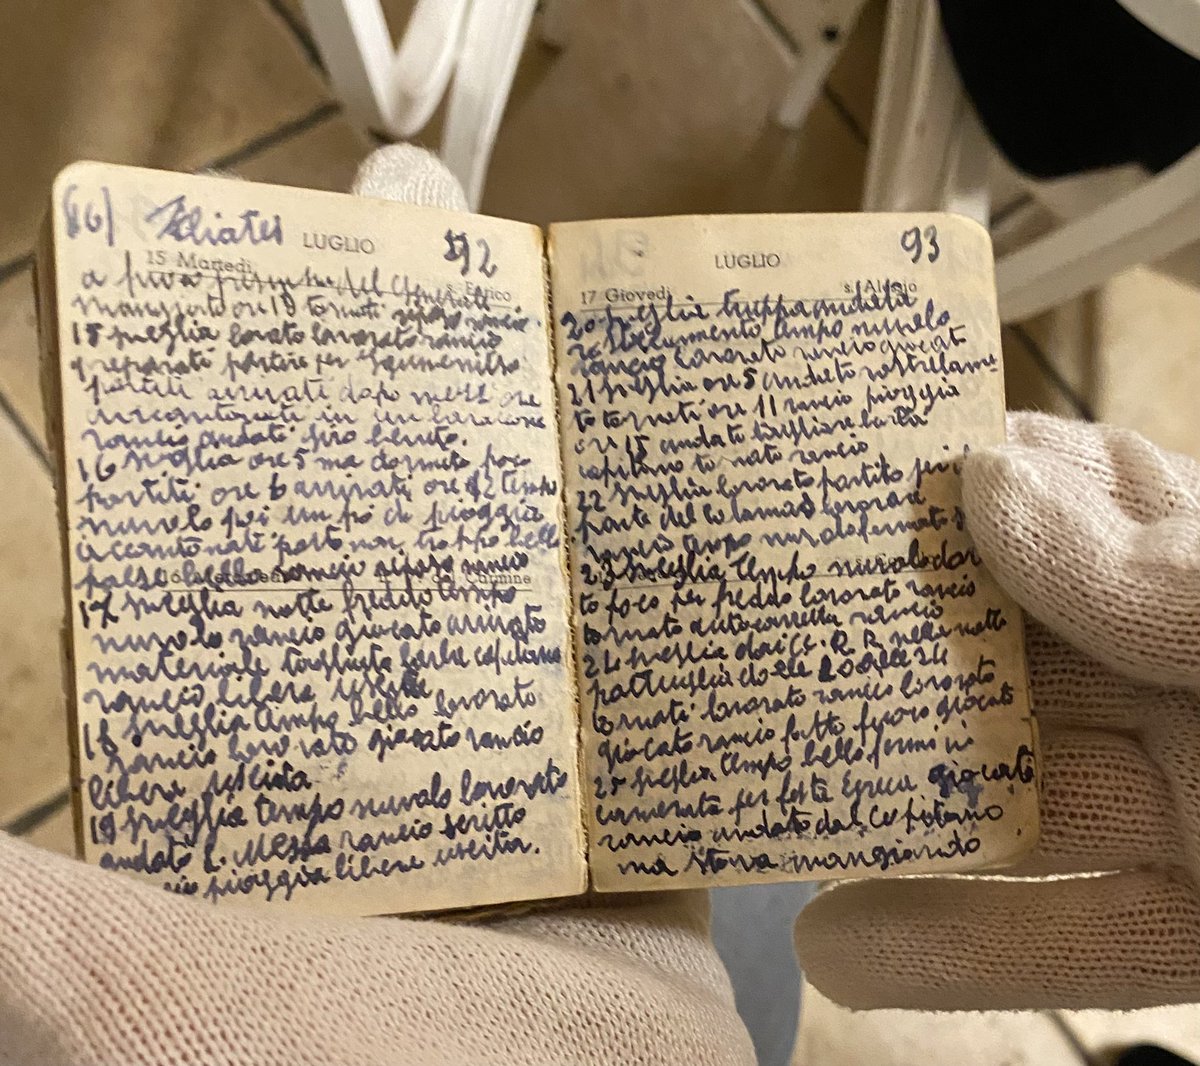 86)
Filiates
92
LUGLIO
15 Martedì
s. Enrico
a del Generale
mangiato ore 19 tornati riposo rancio.
15 sveglia lavato lavorato rancio
preparati partire per Igumenitsa
partiti arrivati dopo mezz ore
accantonati in un baracone
rancio andati giro bevuto.
16 sveglia ore 5 ma dormito poco
partiti ore 6 arrivati ore 12 tempo
nuvolo poi un pò di pioggia
accantonati posto non troppo bello
paese bello riposo rancio
17 sveglia notte freddo tempo
nuvolo rancio giocato arrivato
materiale tagliato barba capitano
rancio libera uscita
18 sveglia tempo bello lavorato
rancio lavorato giocato rancio
libera uscita
19 sveglia tempo nuvolo lavorato
andato S. Messa rancio scritto
pioggia libera uscita.
93
LUGLIO
17 Giovedì
s. Alessio
20 sveglia truppa andata
tempo nuvolo
rancio lavorato rancio giocato
21 sveglia ore 5 andato rastrellamen
to tornati ore 11 rancio pioggia
ore 15 andato tagliare barba
capitano tornato rancio
22 sveglia lavorato partito
parte del lavorare
rancio tempo nuvolo fermato
23 sveglia tempo nuvolo dor
to poco per freddo lavorato rancio
tornato autocarretta rancio
24 sveglia dai CC. R R. nella notte
pattuglia dalle 20 alle 24
tornati lavorato rancio lavorato
giocato rancio fatto fuoco giocato
25 sveglia tempo bello fermi in
camerata per festa Greca giocato
rancio andato dal Capitano
ma stava mangiando